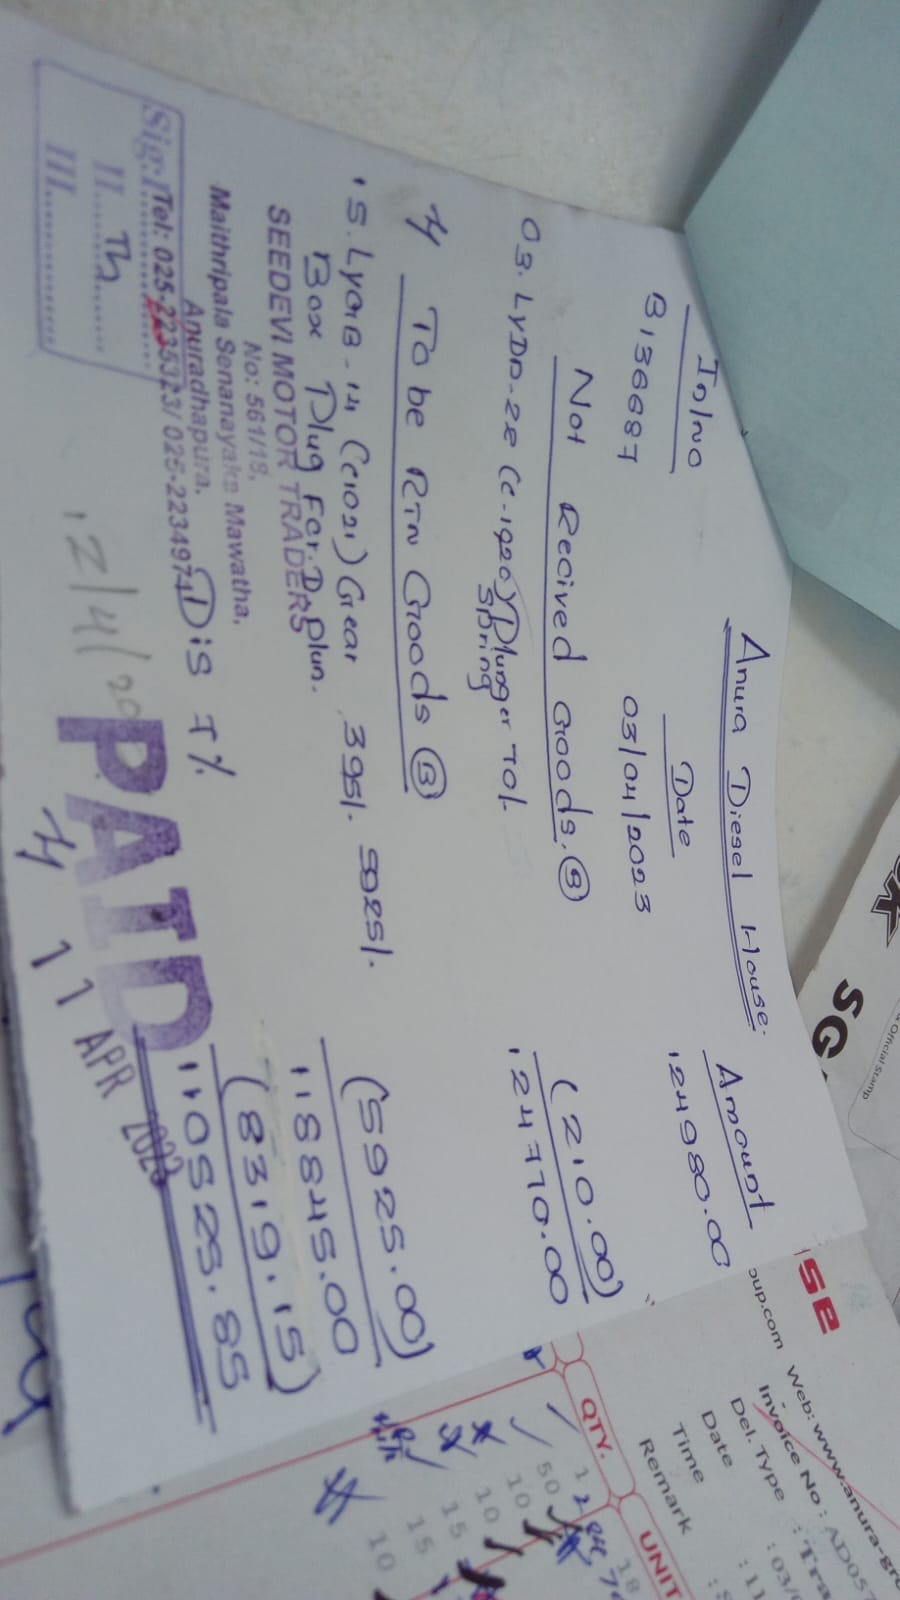 Anura Diesel House.
In/No Date Amount
B136687 03/04/2023 124980.00
Not Recived Goods. (B)
03. LYDD-ZE (C-1920) Plunger 70/. (210.00)
Spring
124770.00
To be RTN Goods (B)
15. LY01B-14 (C1021) Gear 395/. 5925/. (5925.00)
Box Plug For.D.plun.
118845.00
SEEDEVI MOTOR TRADERS
No: 561/18,
Maithripala Senanayake Mawatha,
Anuradhapura.
Tel: 025-2235323/ 025-2234974
Dis 7% (8319.15)
110525.85
Sig:I
II
III
PAID
11 APR 2023
SG
Official Stamp
SE
oup.com Web: www.anura-gr
Invoice No : AD057
Del. Type : Tra
Date : 03/
Time : 11
Remark : S
QTY. UNIT
12
50
10
10
15
15
10
18